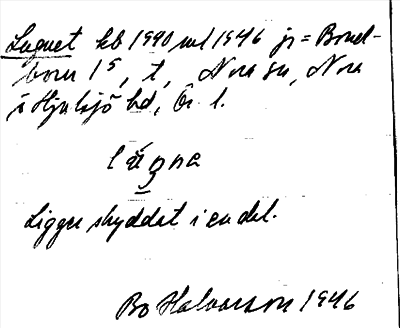 Lugnet kb 1940 uvl 1946 jr = Bond-
born 1⁵, t, Nora sn, Nora
& Hjulsjö bd, Ör. l.
Ligger skyddat i en del.
Bo Halvarson 1946